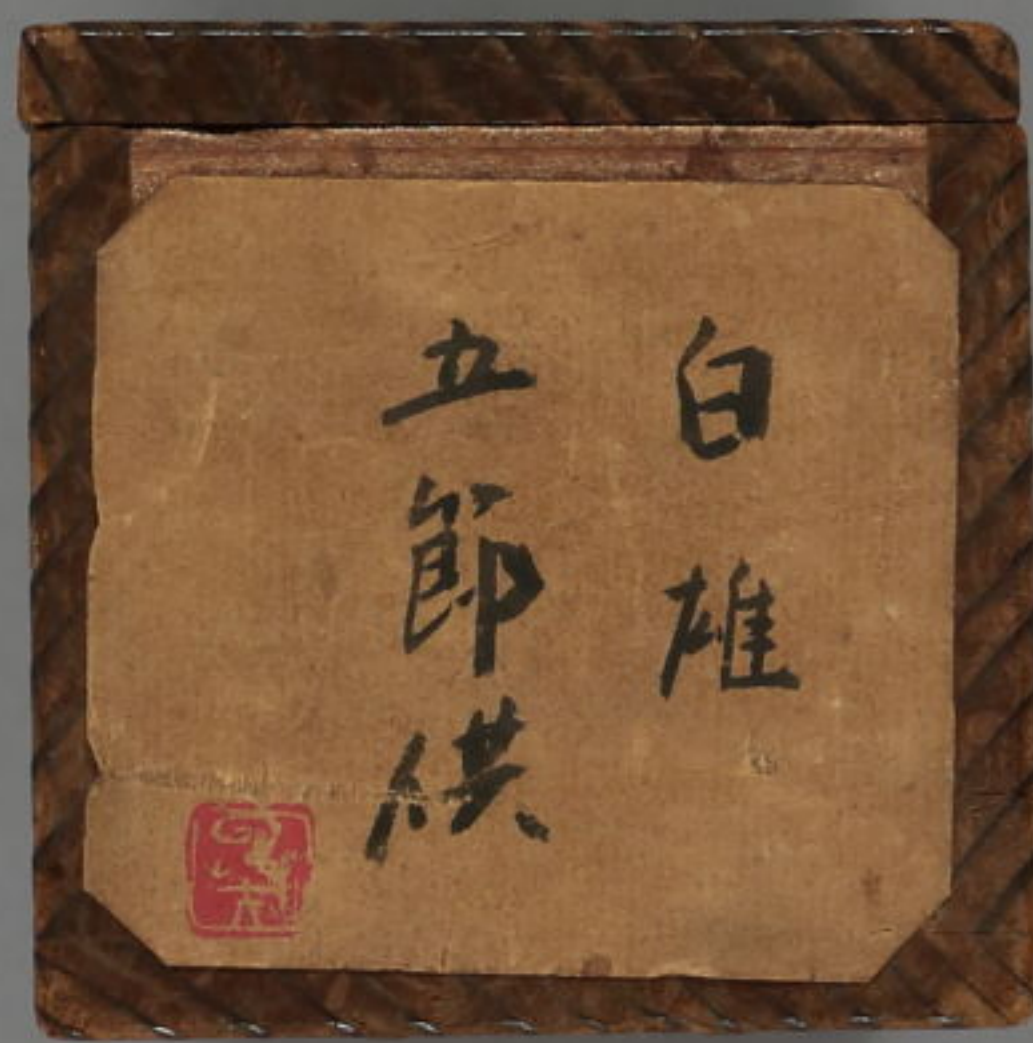 白雄
五節供